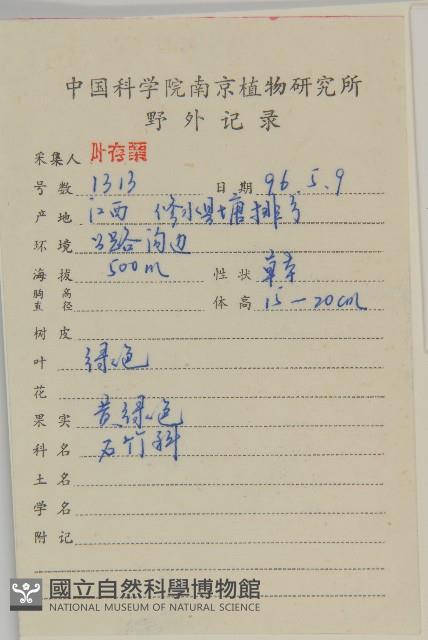 中国科学院南京植物研究所
野外记录
采集人 叶存粟
号数 1313 日期 96.5.9
产地 江西 修水县塘排
环境 公路沟边
海拔 500m 性状 草本
胸高直径 体高 15—20cm
树皮
叶 绿色
花
果实 黄绿色
科名 石竹科
土名
学名
附记
國立自然科學博物館
NATIONAL MUSEUM OF NATURAL SCIENCE